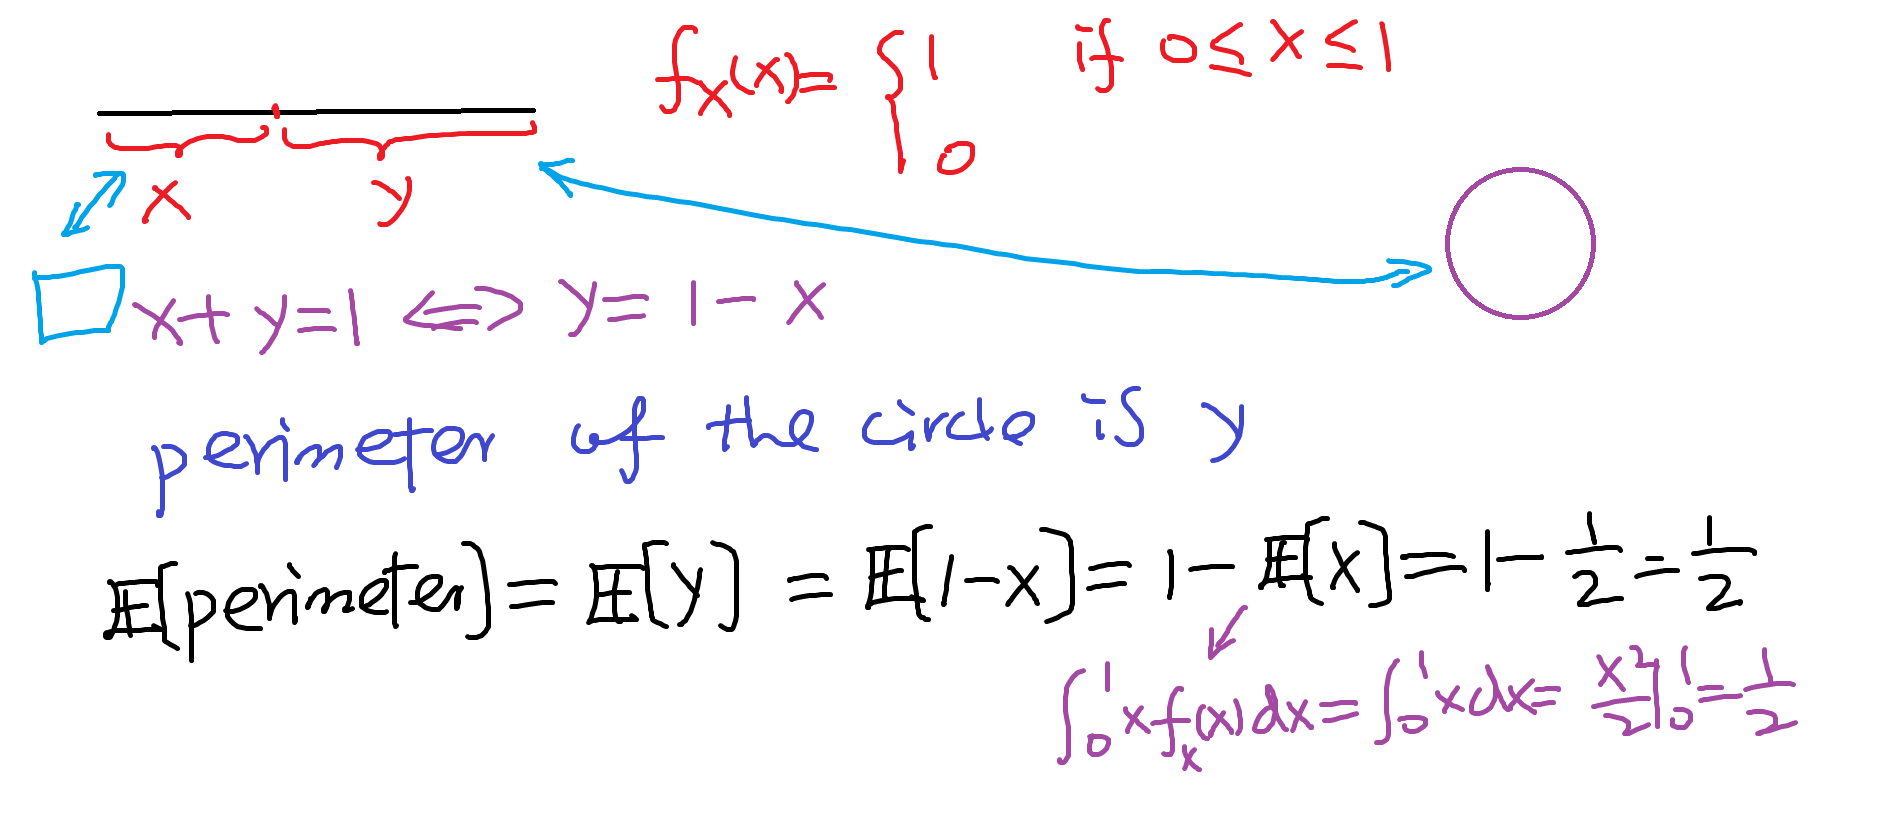 f_X(x) = { 1 if 0 ≤ x ≤ 1
0
x y
x + y = 1 ⇔ y = 1 − x
perimeter of the circle is y
𝔼[perimeter] = 𝔼[y] = 𝔼[1−x] = 1 − 𝔼[x] = 1 − 1/2 = 1/2
∫₀¹ x f_x(x) dx = ∫₀¹ x dx = x²/2 |₀¹ = 1/2